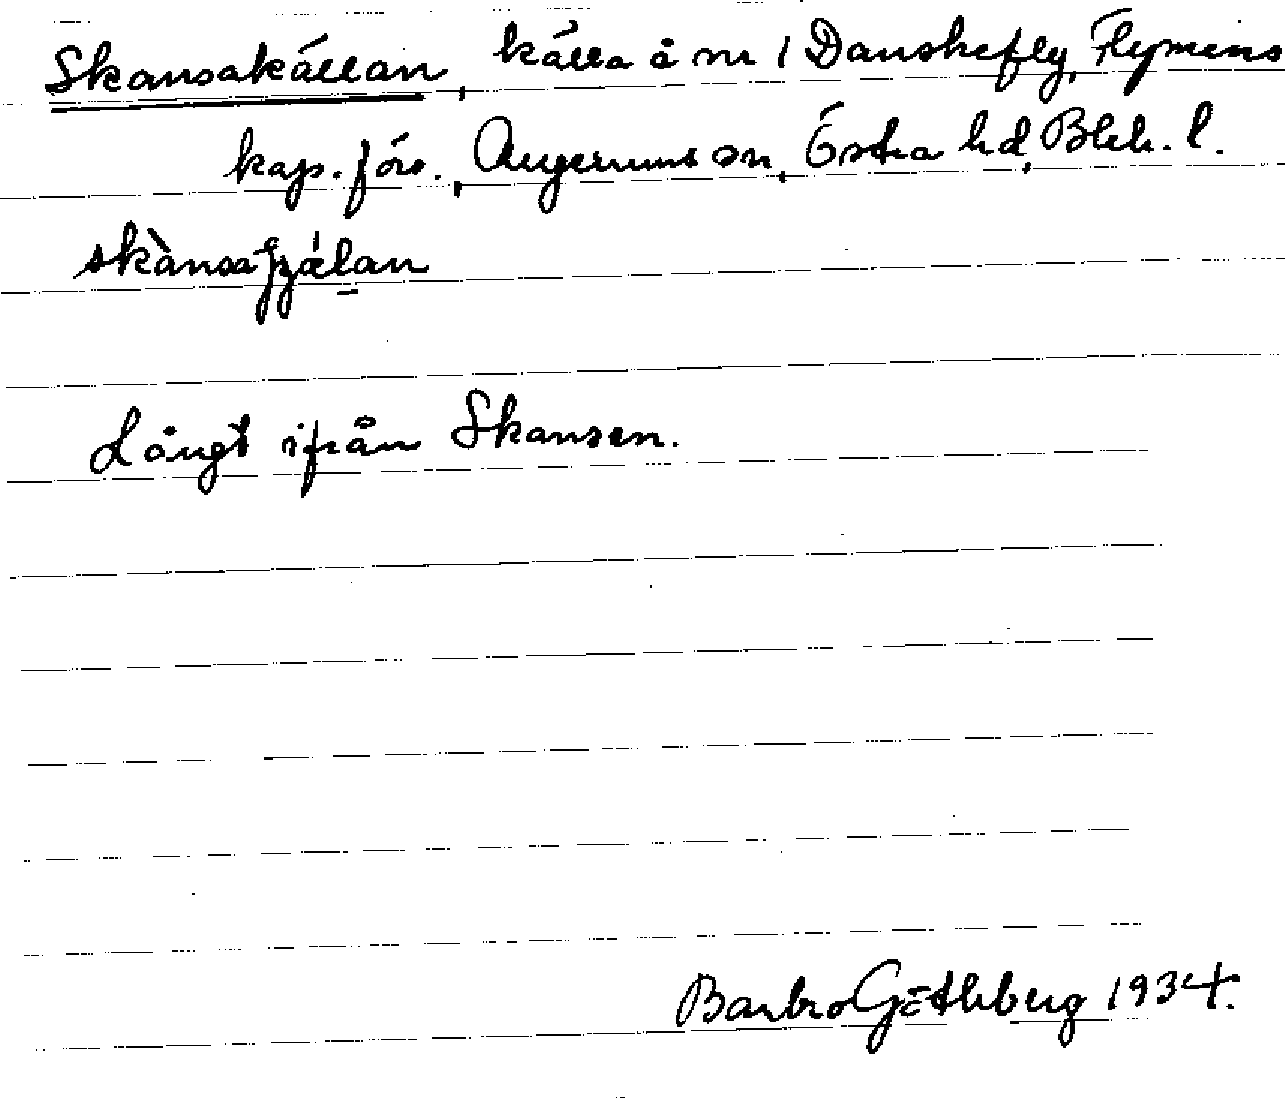 Skansakällan, källa å nr 1 Danskefly, Flymens
kap. förs., Augerums sn, Östra hd, Blek. l.
Långt ifrån Skansen.
Barbro Göthberg 1934.